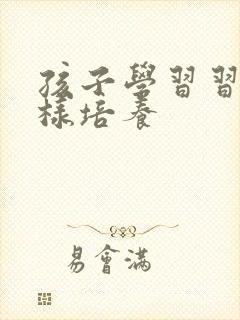 孩子學習習
樣培養
易會滿